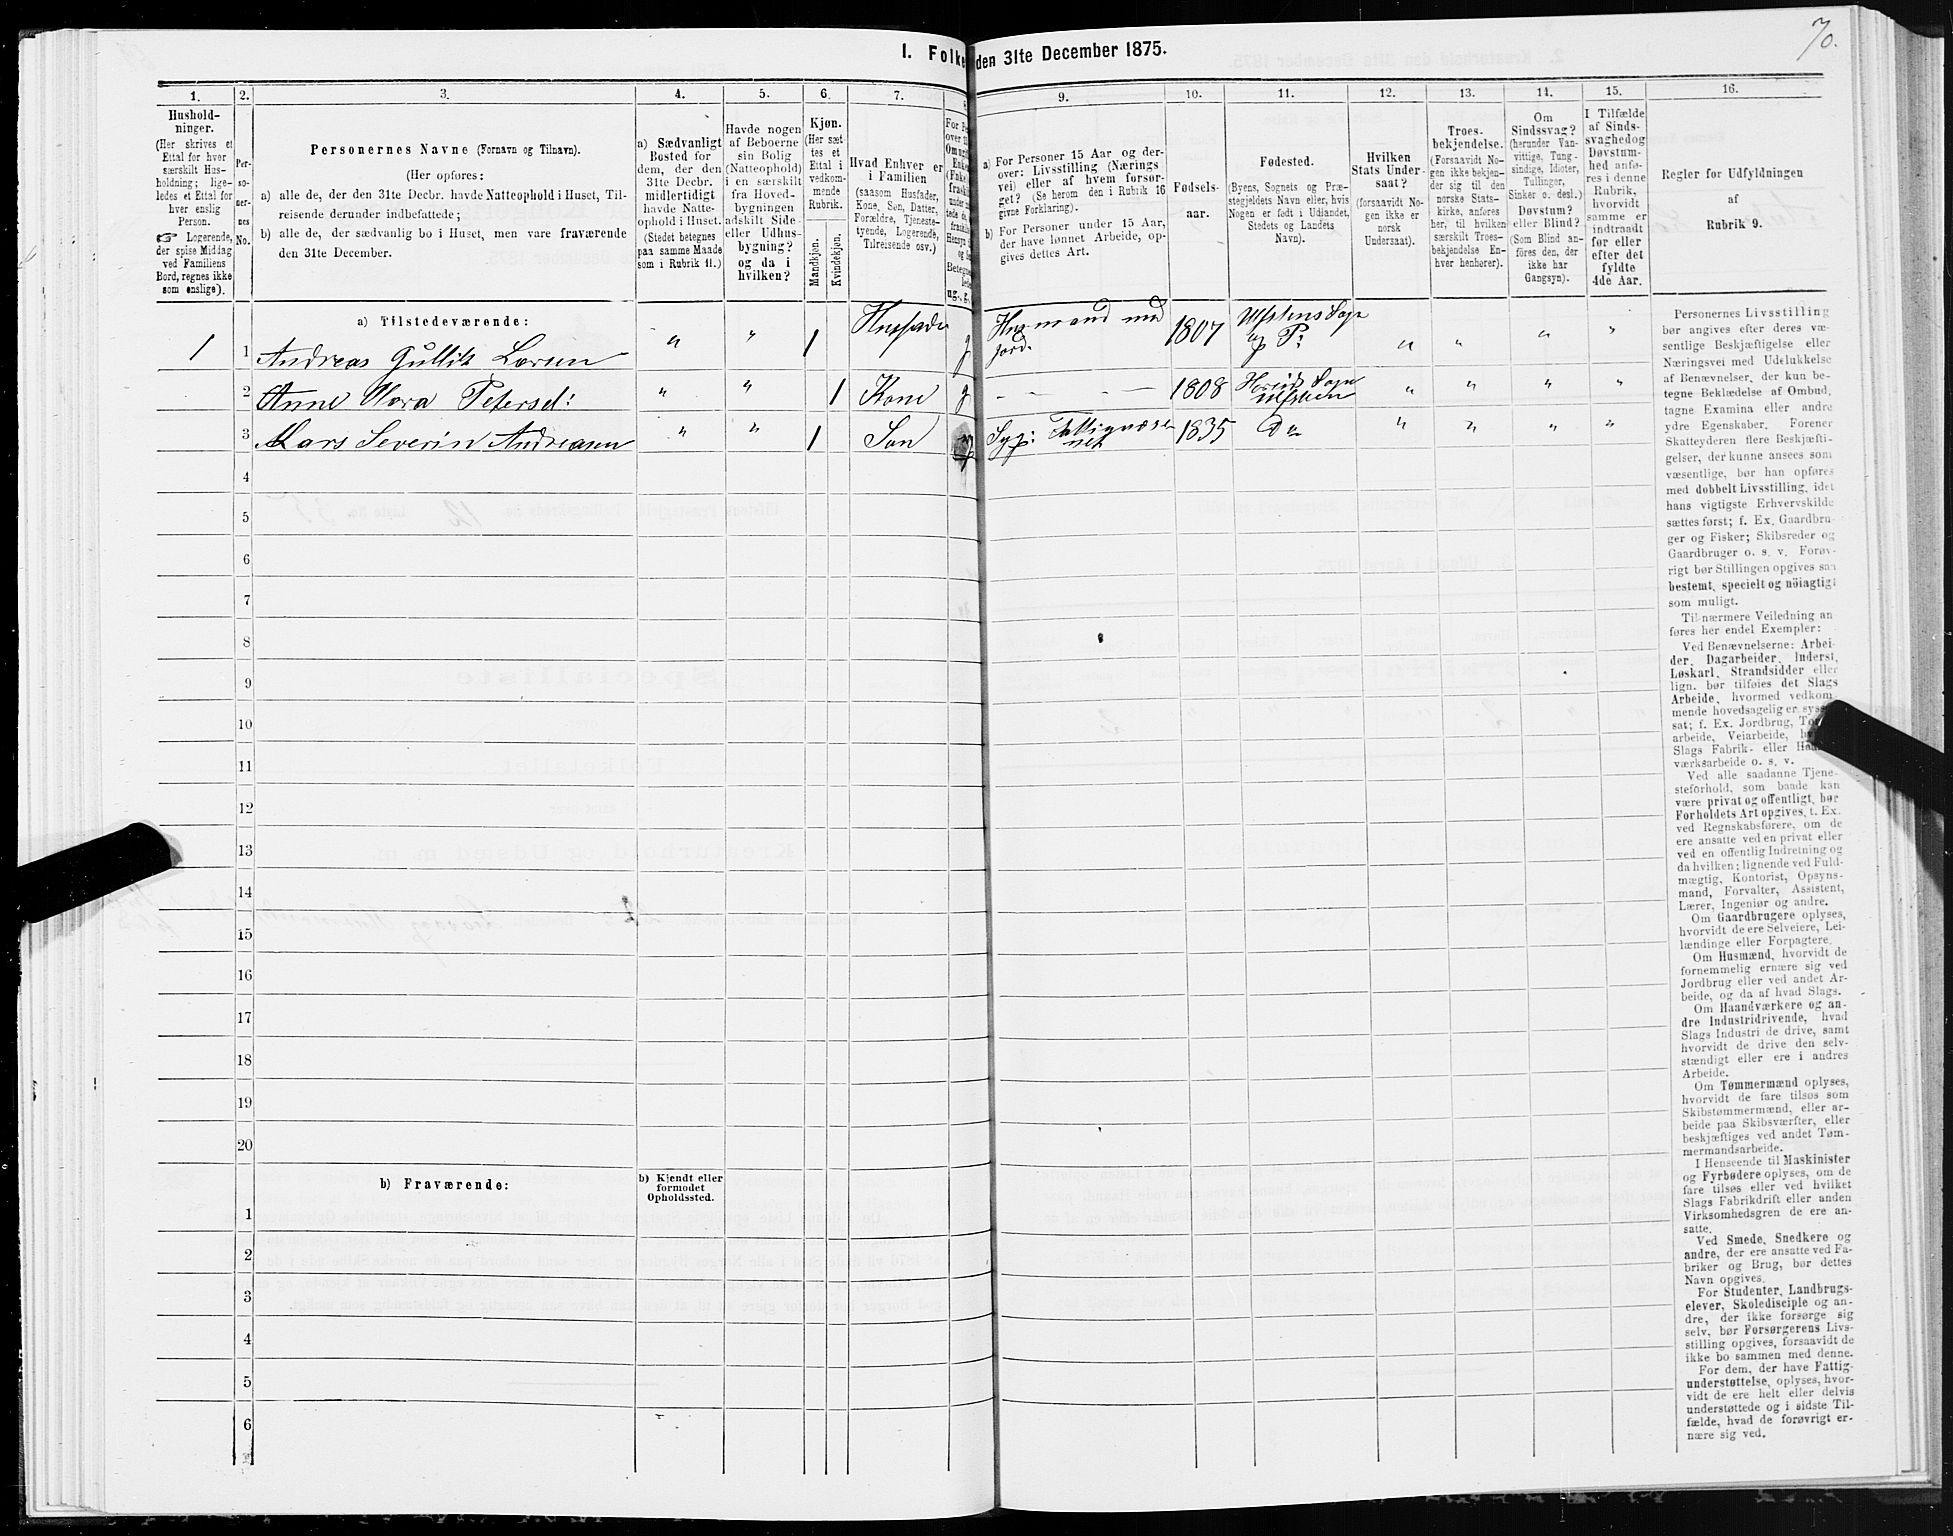 70.
I. Folke den 31te December 1875.
1. 2. 3. 4. 5. 6. 7. 8 9. 10. 11. 12. 13. 14. 15. 16.
Hushold-
ninger.
(Her skrives et
Ettal for hver
særskilt Hus-
holdning; lige-
ledes et Ettal for
hver enslig
Person.
☞ Logerende,
der spise Middag
ved Familiens
Bord, regnes ikke
som enslige).
Per-
so-
ner-
nes
No.
Personernes Navne (Fornavn og Tilnavn).
(Her opføres:
a) alle de, der den 31te Decbr. havde Natteophold i Huset, Til-
reisende derunder indbefattede;
b) alle de, der sædvanlig bo i Huset, men vare fraværende
den 31te December.
a) Sædvanligt
Bosted for
dem, der den
31te Decbr.
midlertidigt
havde Natte-
ophold i Huset.
(Stedet betegnes
paa samme Maade
som i Rubrik 11.)
Havde nogen
af Beboerne
sin Bolig
(Natteophold)
i en særskilt
fra Hoved-
bygningen
adskilt Side-
eller Udhus-
bygning?
og da i
hvilken?
Kjøn.
(Her sæt-
tes et
Ettal i
vedkom-
mende
Rubrik.
Mandkjøn.
Kvindekjøn.
Hvad Enhver er
i Familien
(saasom Husfader,
Kone, Søn, Datter,
Forældre, Tjeneste-
tyende, Logerende,
Tilreisende osv.)
a) For Personer 15 Aar og der-
over: Livsstilling (Nærings
vei) eller af hvem forsør-
get? (Se herom den i Rubrik 16
givne Forklaring).
b) For Personer under 15 Aar,
der have lønnet Arbeide, op-
gives dettes Art.
Fødsels-
aar.
Fødested.
(Byens, Sognets og Præ-
stegjeldets Navn eller, hvis
Nogen er født i Udlandet,
Stedets og Landets
Navn).
Hvilken
Stats Under-
saat?
(forsaavidt No-
gen ikke er
norsk
Undersaat).
Troes-
bekjendelse.
(Forsaavidt No-
gen ikke bekjen-
der sig til den
norske Stats-
kirke, anføres
her, til hvilken
særskilt Troes-
bekjendelse En-
hver henhører).
Om
Sindssvag?
(herunder Van-
vittige, Tung-
sindige, Idioter,
Tullinger,
Sinker o. desl.)
Døvstum?
eller Blind?
(Som Blind an-
føres den, der
ikke har
Gangsyn).
I Tilfælde
af Sinds-
svaghed og
Døvstum-
hed anfø-
res i denne
Rubrik,
hvorvidt
samme er
indtraadt
før eller
efter det
fyldte
4de Aar.
Regler for Udfyldningen
af
Rubrik 9.
a) Tilstedeværende:
1 1 Andreas Gullik Larsen " " 1 Husfader g Husmand med Jord. 1807 Ulstens Sogn og P: " " " "
2 Anne Nora Petersd: " " 1 Kone g - - - 1808 Hareids Sogn Ulsten " " " "
3 Lars Severin Andreasen " " 1 Søn Fattigvæsenet 1835 Do " " " "
4
5
6
7
8
9
10
11
12
13
14
15
16
17
18
19
20
b) Fraværende:
b) Kjendt eller
formodet
Opholdssted.
1
2
3
4
5
6
Personernes Livsstilling
bør angives efter deres væ-
sentlige Beskjæftigelse eller
Næringsvei med Udelukkelse
af Benævnelser, der kun be-
tegne Beklædelse af Ombud,
tagne Examina eller andre
ydre Egenskaber. Forener
Skatteyderen flere Beskjæfti-
gelser, der kunne ansees som
væsentlige, bør han opføres
med dobbelt Livsstilling, idet
hans vigtigste Erhvervskilde
sættes først; f. Ex. Gaardbru-
ger og Fisker; Skibsreder og
Gaardbruger o. s. v. Forøv-
rigt bør Stillingen opgives saa
bestemt, specielt og nöiagtigt
som muligt.
Til nærmere Veiledning an-
føres her endel Exempler:
Ved Benævnelserne: Arbei-
der, Dagarbeider, Inderst,
Løskarl, Strandsidder eller
lign. bør tilføies det Slags
Arbeide, hvormed vedkom-
mende hovedsagelig er syssel-
sat; f. Ex. Jordbrug,
arbeide, Veiarbeide,
Slags Fabrik- eller
værksarbeide o. s. v.
Ved alle saadanne Tjene-
steforhold, som baade kan
være privat og offentligt, bør
Forholdets Art opgives, t. Ex.
ved Regnskabsførere, om de
ere ansatte ved en privat eller
ved en offentlig Indretning og
da hvilken; lignende ved Fuld-
mægtig, Kontorist, Opsyns-
mand, Forvalter, Assistent,
Lærer, Ingeniør og andre.
Om Gaardbrugere oplyses,
hvorvidt de ere Selveiere, Lei-
lændinge eller Forpagtere.
Om Husmænd, hvorvidt de
fornemmelig ernære sig ved
Jordbrug eller ved andet Ar-
beide, og da af hvad Slags.
Om Haandværkere og an-
dre Industridrivende, hvad
Slags Industri de drive, samt
hvorvidt de drive den selv-
stændigt eller ere i andres
Arbeide.
Om Tømmermænd oplyses,
hvorvidt de fare tilsøs som
Skibstømmermænd, eller ar-
beide paa Skibsværfter, eller
beskjæftiges ved andet Tøm-
mermandsarbeide.
I Henseende til Maskinister
og Fyrbødere oplyses, om de
fare tilsøs eller ved hvilket
Slags Fabrikdrift eller anden
Virksomhedsgren de ere an-
satte.
Ved Smede, Snedkere og
andre, der ere ansatte ved Fa-
briker og Brug, bør dettes
Navn opgives.
For Studenter, Landbrugs-
elever, Skoledisciple og an-
dre, der ikke forsørge sig
selv, bør Forsørgerens Livs-
stilling opgives, forsaavidt de
ikke bo sammen med denne.
For dem, der have Fattig-
understøttelse, oplyses, hvor-
vidt de ere helt eller delvis
understøttede og i sidste Til-
fælde, hvad de forøvrigt er-
nære sig ved.